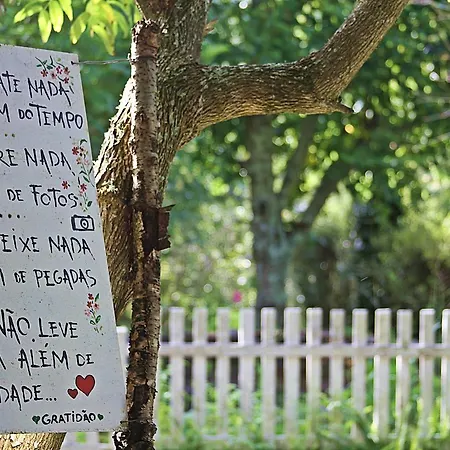 ATE NADA
M DO TEMPO
RE NADA
DE FOTOS
EIXE NADA
M DE PEGADAS
NÃO LEVE
A ALÉM DE
DADE...
GRATIDÃO